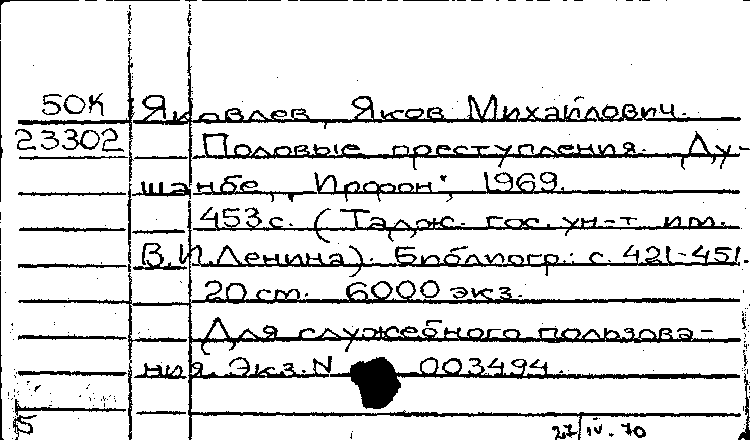 50К Яковлев, Яков Михайлович.
23302 Половые преступления. Ду-
шанбе, "Ирфон", 1969.
453 с. (Тадж. гос. ун-т им.
В.И.Ленина). Библиогр.: с. 421-451.
20 см. 6000 экз.
Для служебного пользова-
ния. Экз. N 003494.
27/IV.70